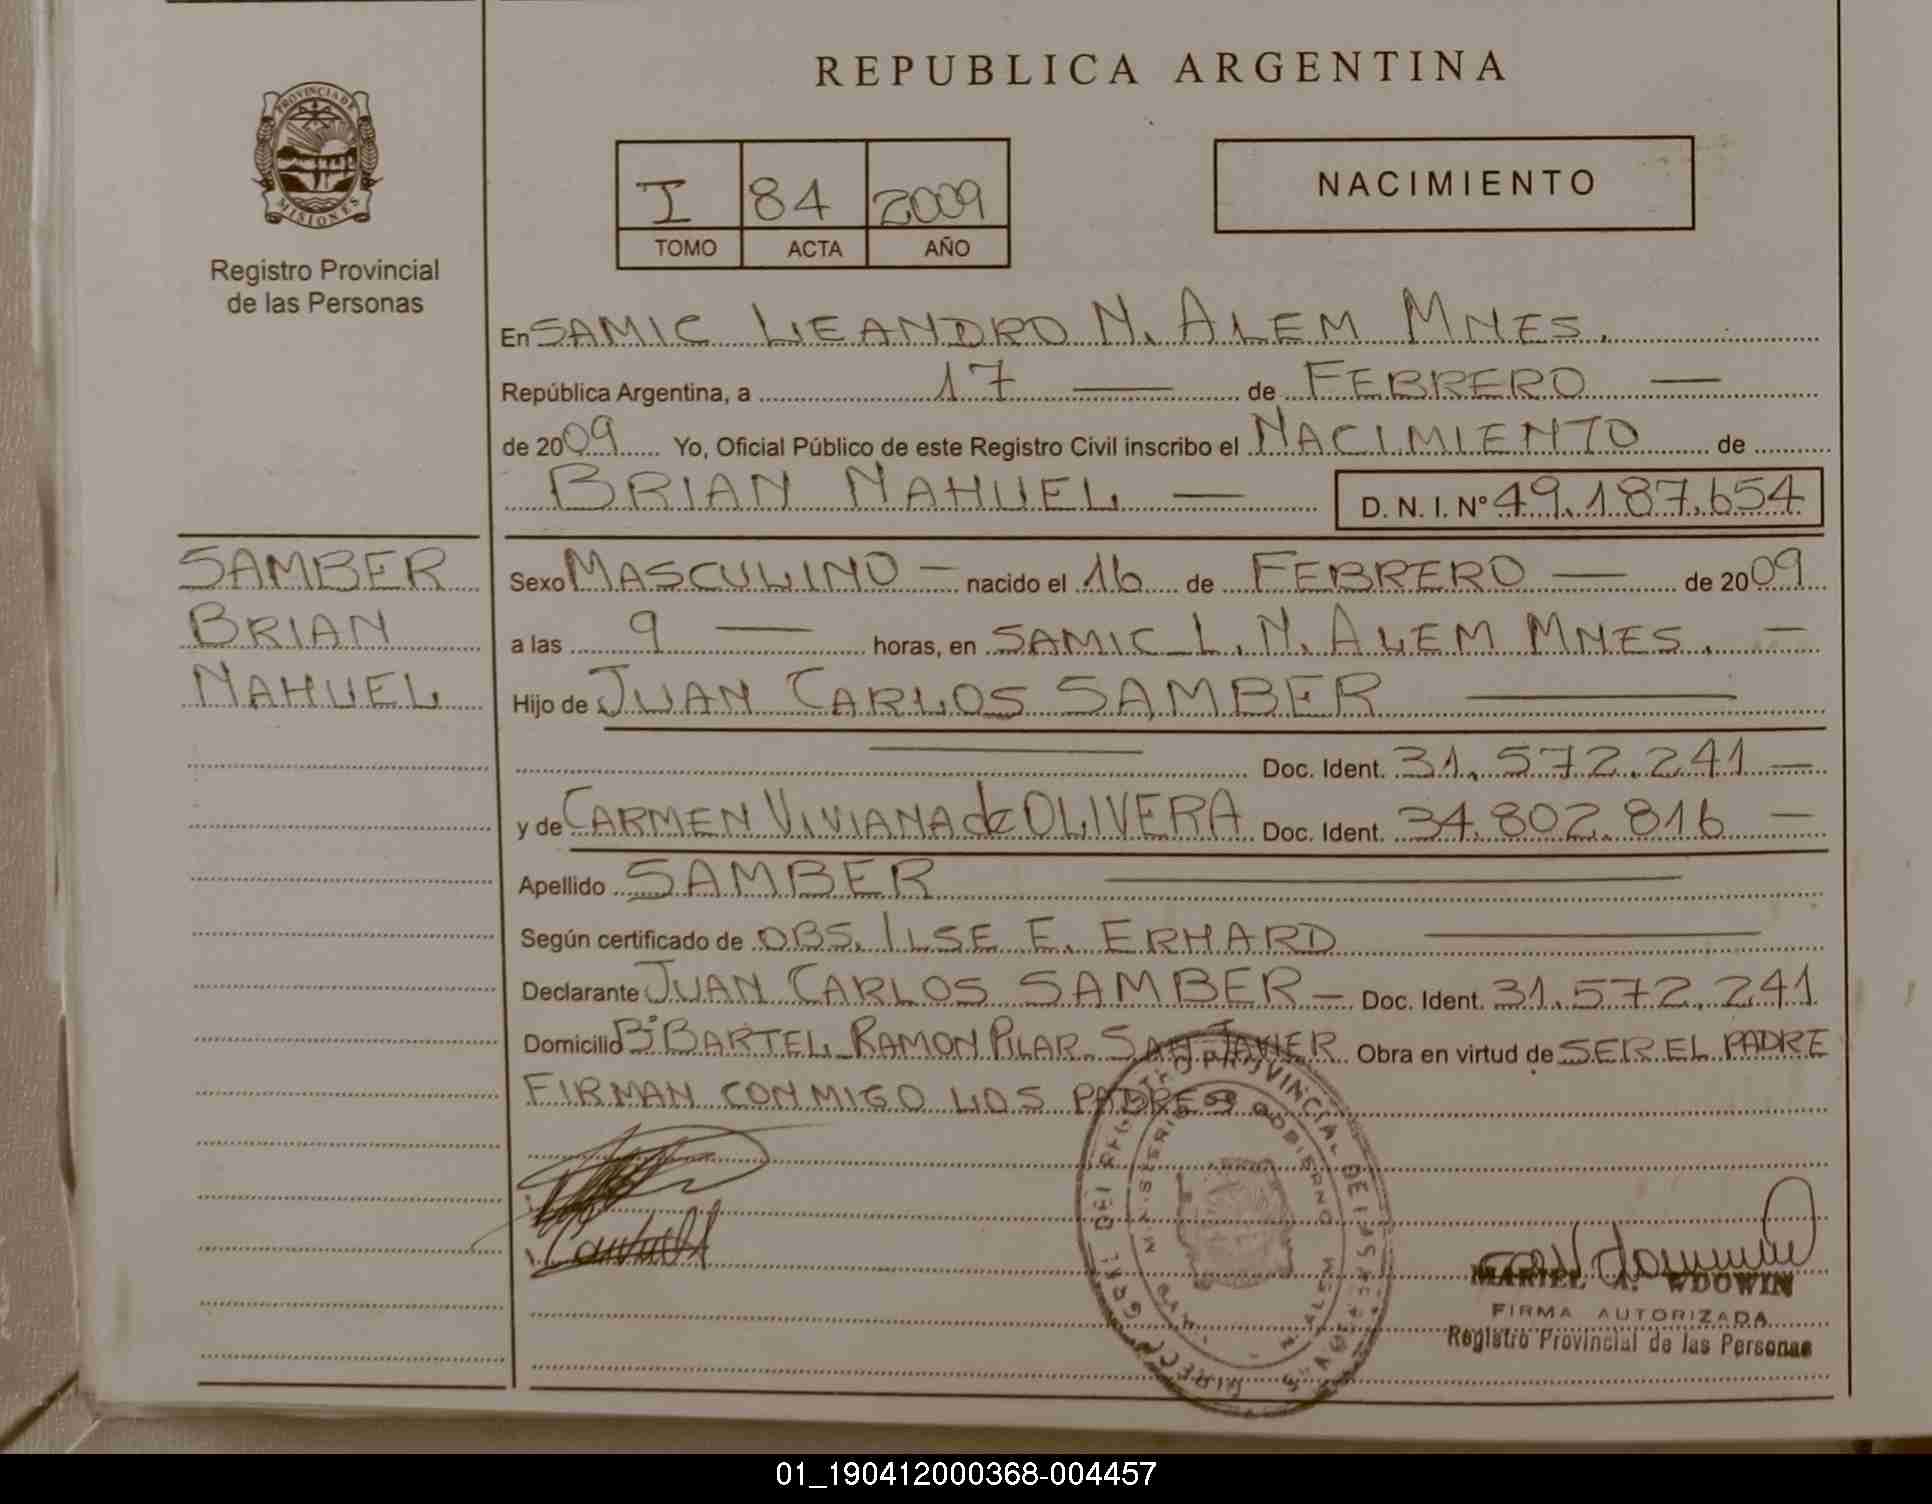 PROVINCIA DE
MISIONES
Registro Provincial
de las Personas
REPUBLICA ARGENTINA
I 84 2009
TOMO ACTA AÑO
NACIMIENTO
En SAMIC LEANDRO N. ALEM MNES.
República Argentina, a 17 — de FEBRERO —
de 2009 Yo, Oficial Público de este Registro Civil inscribo el NACIMIENTO de
BRIAN NAHUEL — D. N. I. N° 49.187.654
SAMBER
BRIAN
NAHUEL
Sexo MASCULINO — nacido el 16 de FEBRERO — de 2009
a las 9 — horas, en SAMIC L. N. ALEM MNES. —
Hijo de JUAN CARLOS SAMBER —
— Doc. Ident. 31.572.241 —
y de CARMEN VIVIANA de OLIVERA Doc. Ident. 34.802.816 —
Apellido SAMBER —
Según certificado de OBS. ILSE E. ERHARD —
Declarante JUAN CARLOS SAMBER — Doc. Ident. 31.572.241
Domicilio B° BARTEL RAMON PILAR SAN JAVIER Obra en virtud de SER EL PADRE
FIRMAN CONMIGO LOS PADRES
DEL REGISTRO PROVINCIAL DE LAS PERSONAS
MINISTERIO DE GOBIERNO
N. ALEM
MARIEL A. WDOWIN
FIRMA AUTORIZADA
Registro Provincial de las Personas
01_190412000368-004457